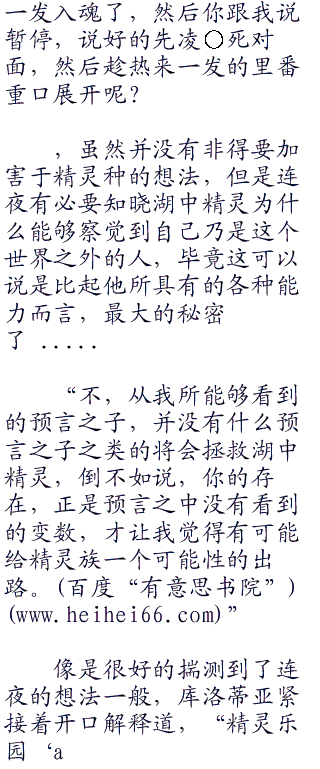 一发入魂了，然后你跟我说
暂停，说好的先凌○死对
面，然后趁热来一发的里番
重口展开呢？
，虽然并没有非得要加
害于精灵种的想法，但是连
夜有必要知晓湖中精灵为什
么能够察觉到自己乃是这个
世界之外的人，毕竟这可以
说是比起他所具有的各种能
力而言，最大的秘密
了 .....
“不，从我所能够看到
的预言之子，并没有什么预
言之子之类的将会拯救湖中
精灵，倒不如说，你的存
在，正是预言之中没有看到
的变数，才让我觉得有可能
给精灵族一个可能性的出
路。(百度“有意思书院”)
(www.heihei66.com)”
像是很好的揣测到了连
夜的想法一般，库洛蒂亚紧
接着开口解释道，“精灵乐
园‘a